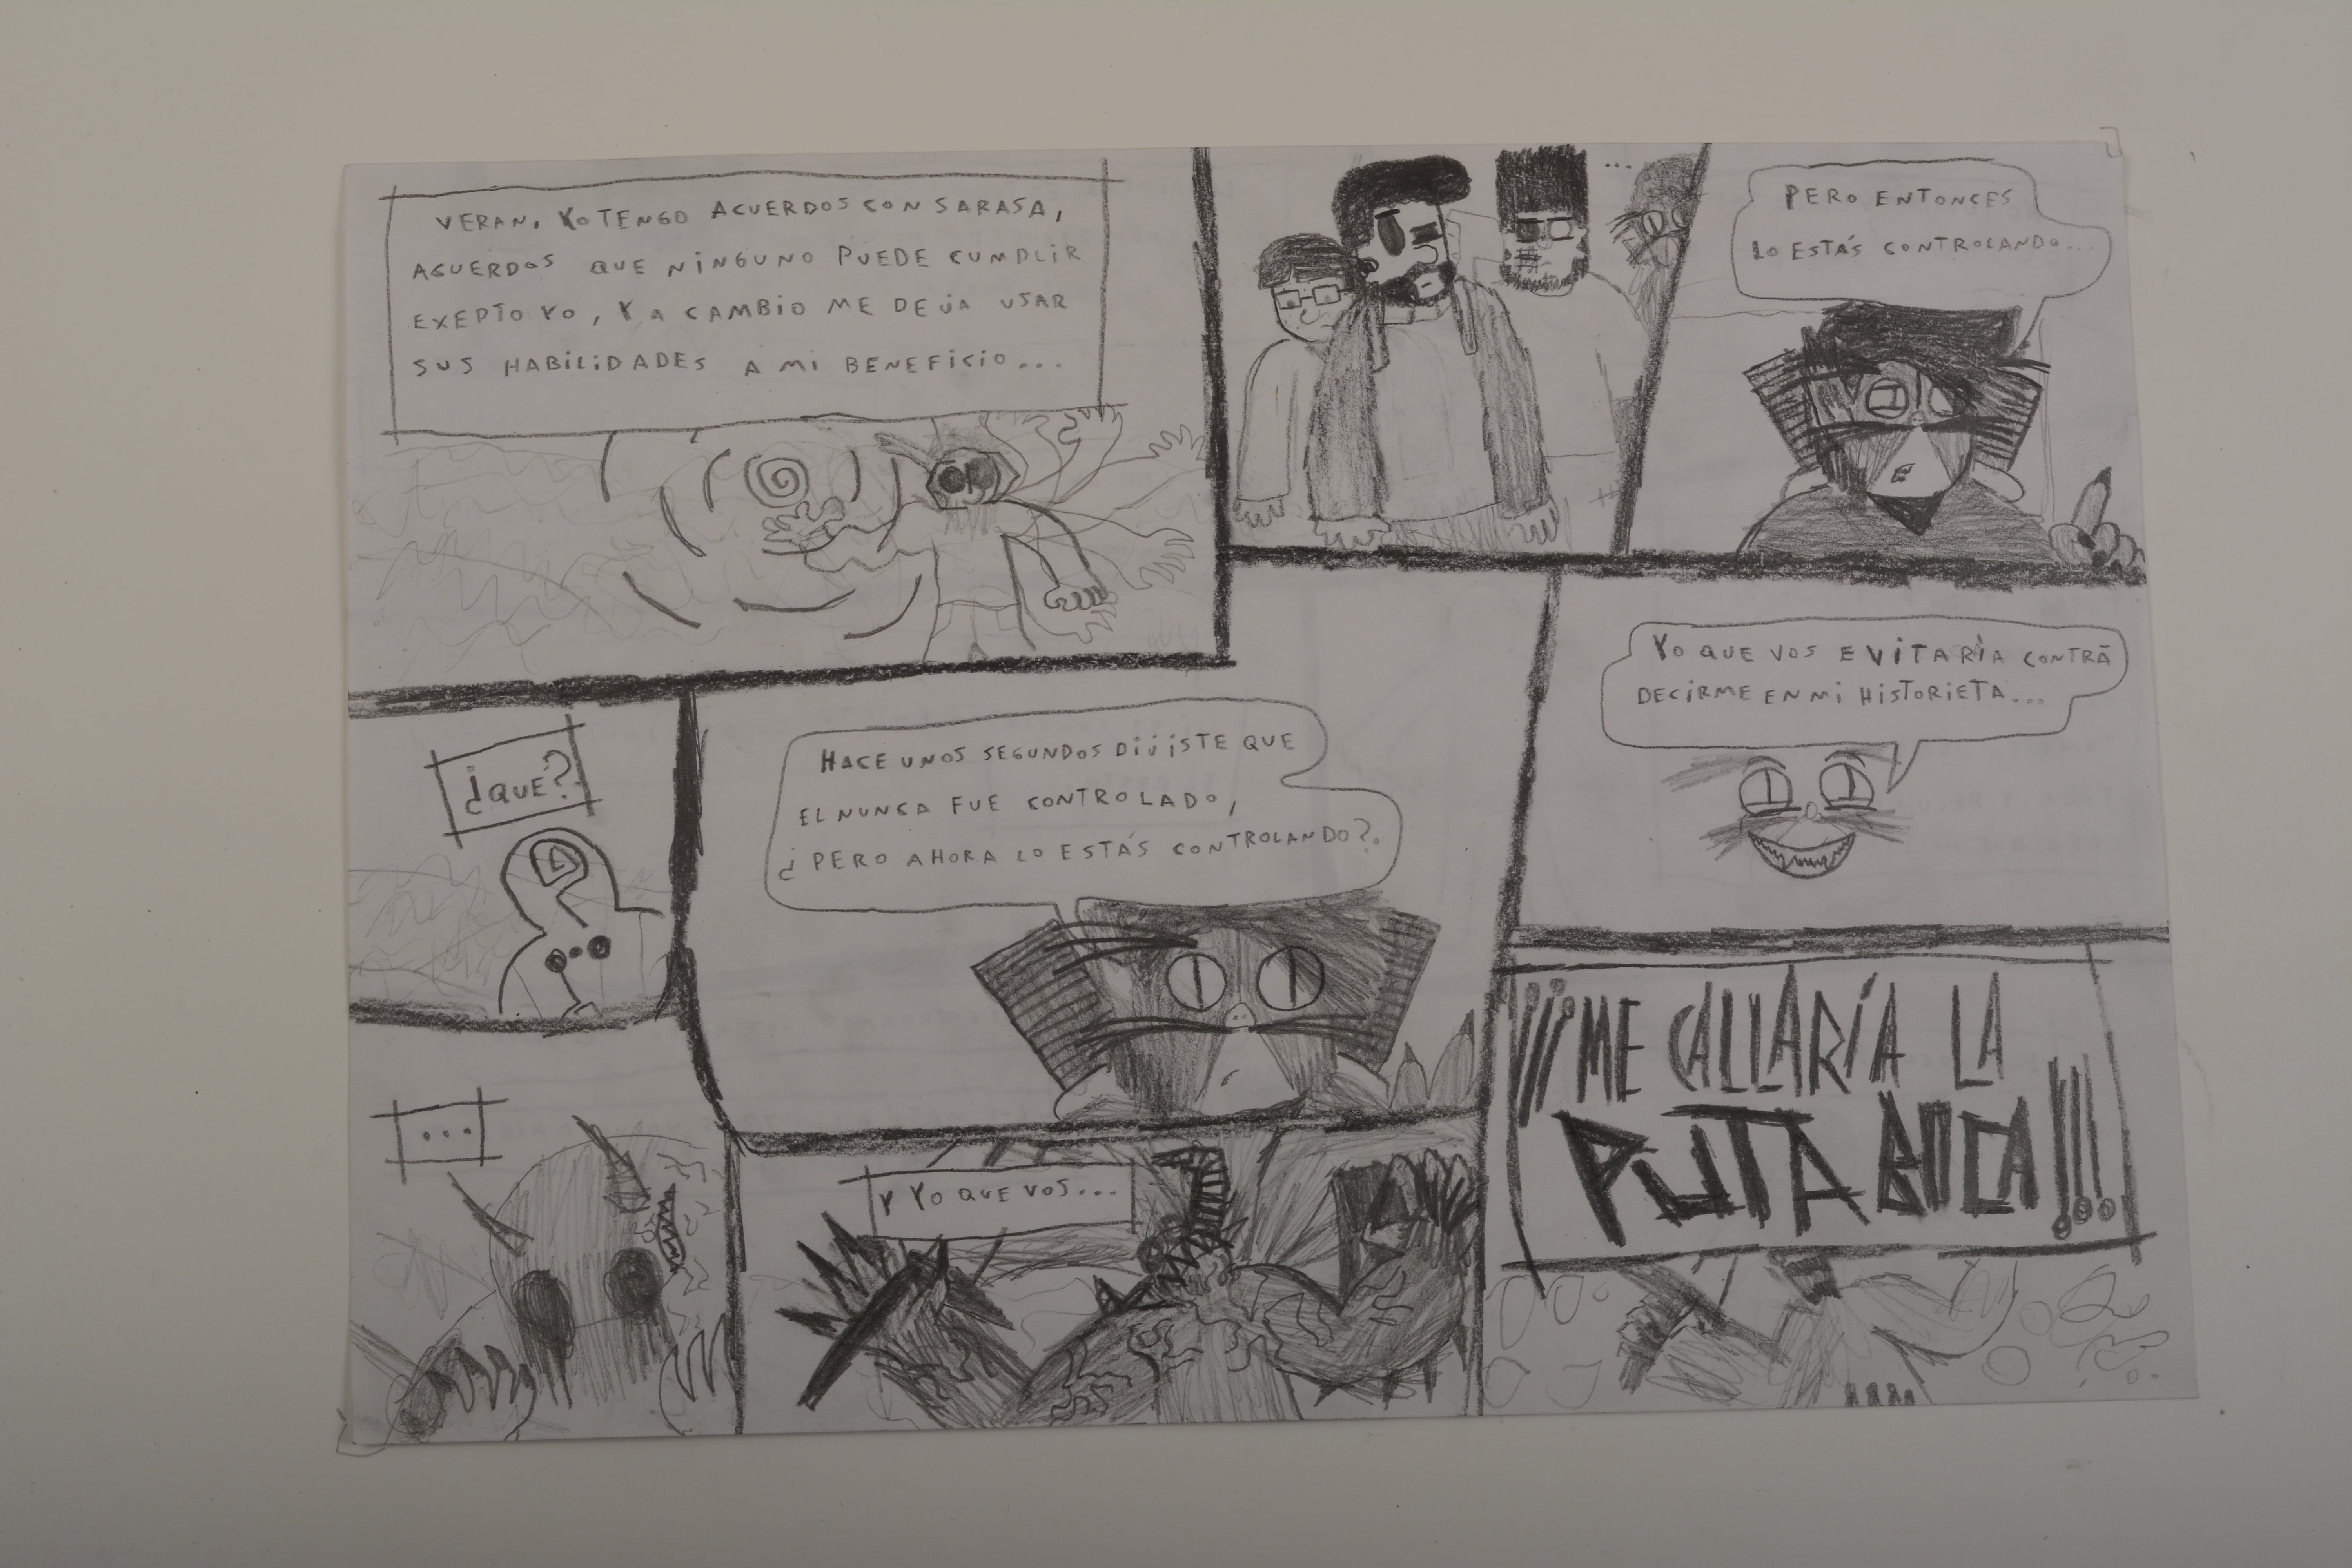 VERAN, YO TENGO ACUERDOS CON SARASA,
ACUERDOS QUE NINGUNO PUEDE CUMPLIR
EXEPTO YO, Y A CAMBIO ME DEJA USAR
SUS HABILIDADES A MI BENEFICIO...
...
PERO ENTONCES
LO ESTÁS CONTROLANDO...
¿QUÉ?
HACE UNOS SEGUNDOS DIJISTE QUE
EL NUNCA FUE CONTROLADO,
¿PERO AHORA LO ESTÁS CONTROLANDO?.
YO QUE VOS EVITARÍA CONTRA
DECIRME EN MI HISTORIETA...
...
Y YO QUE VOS...
¡¡¡ME CALLARÍA LA
PUTA BOCA!!!